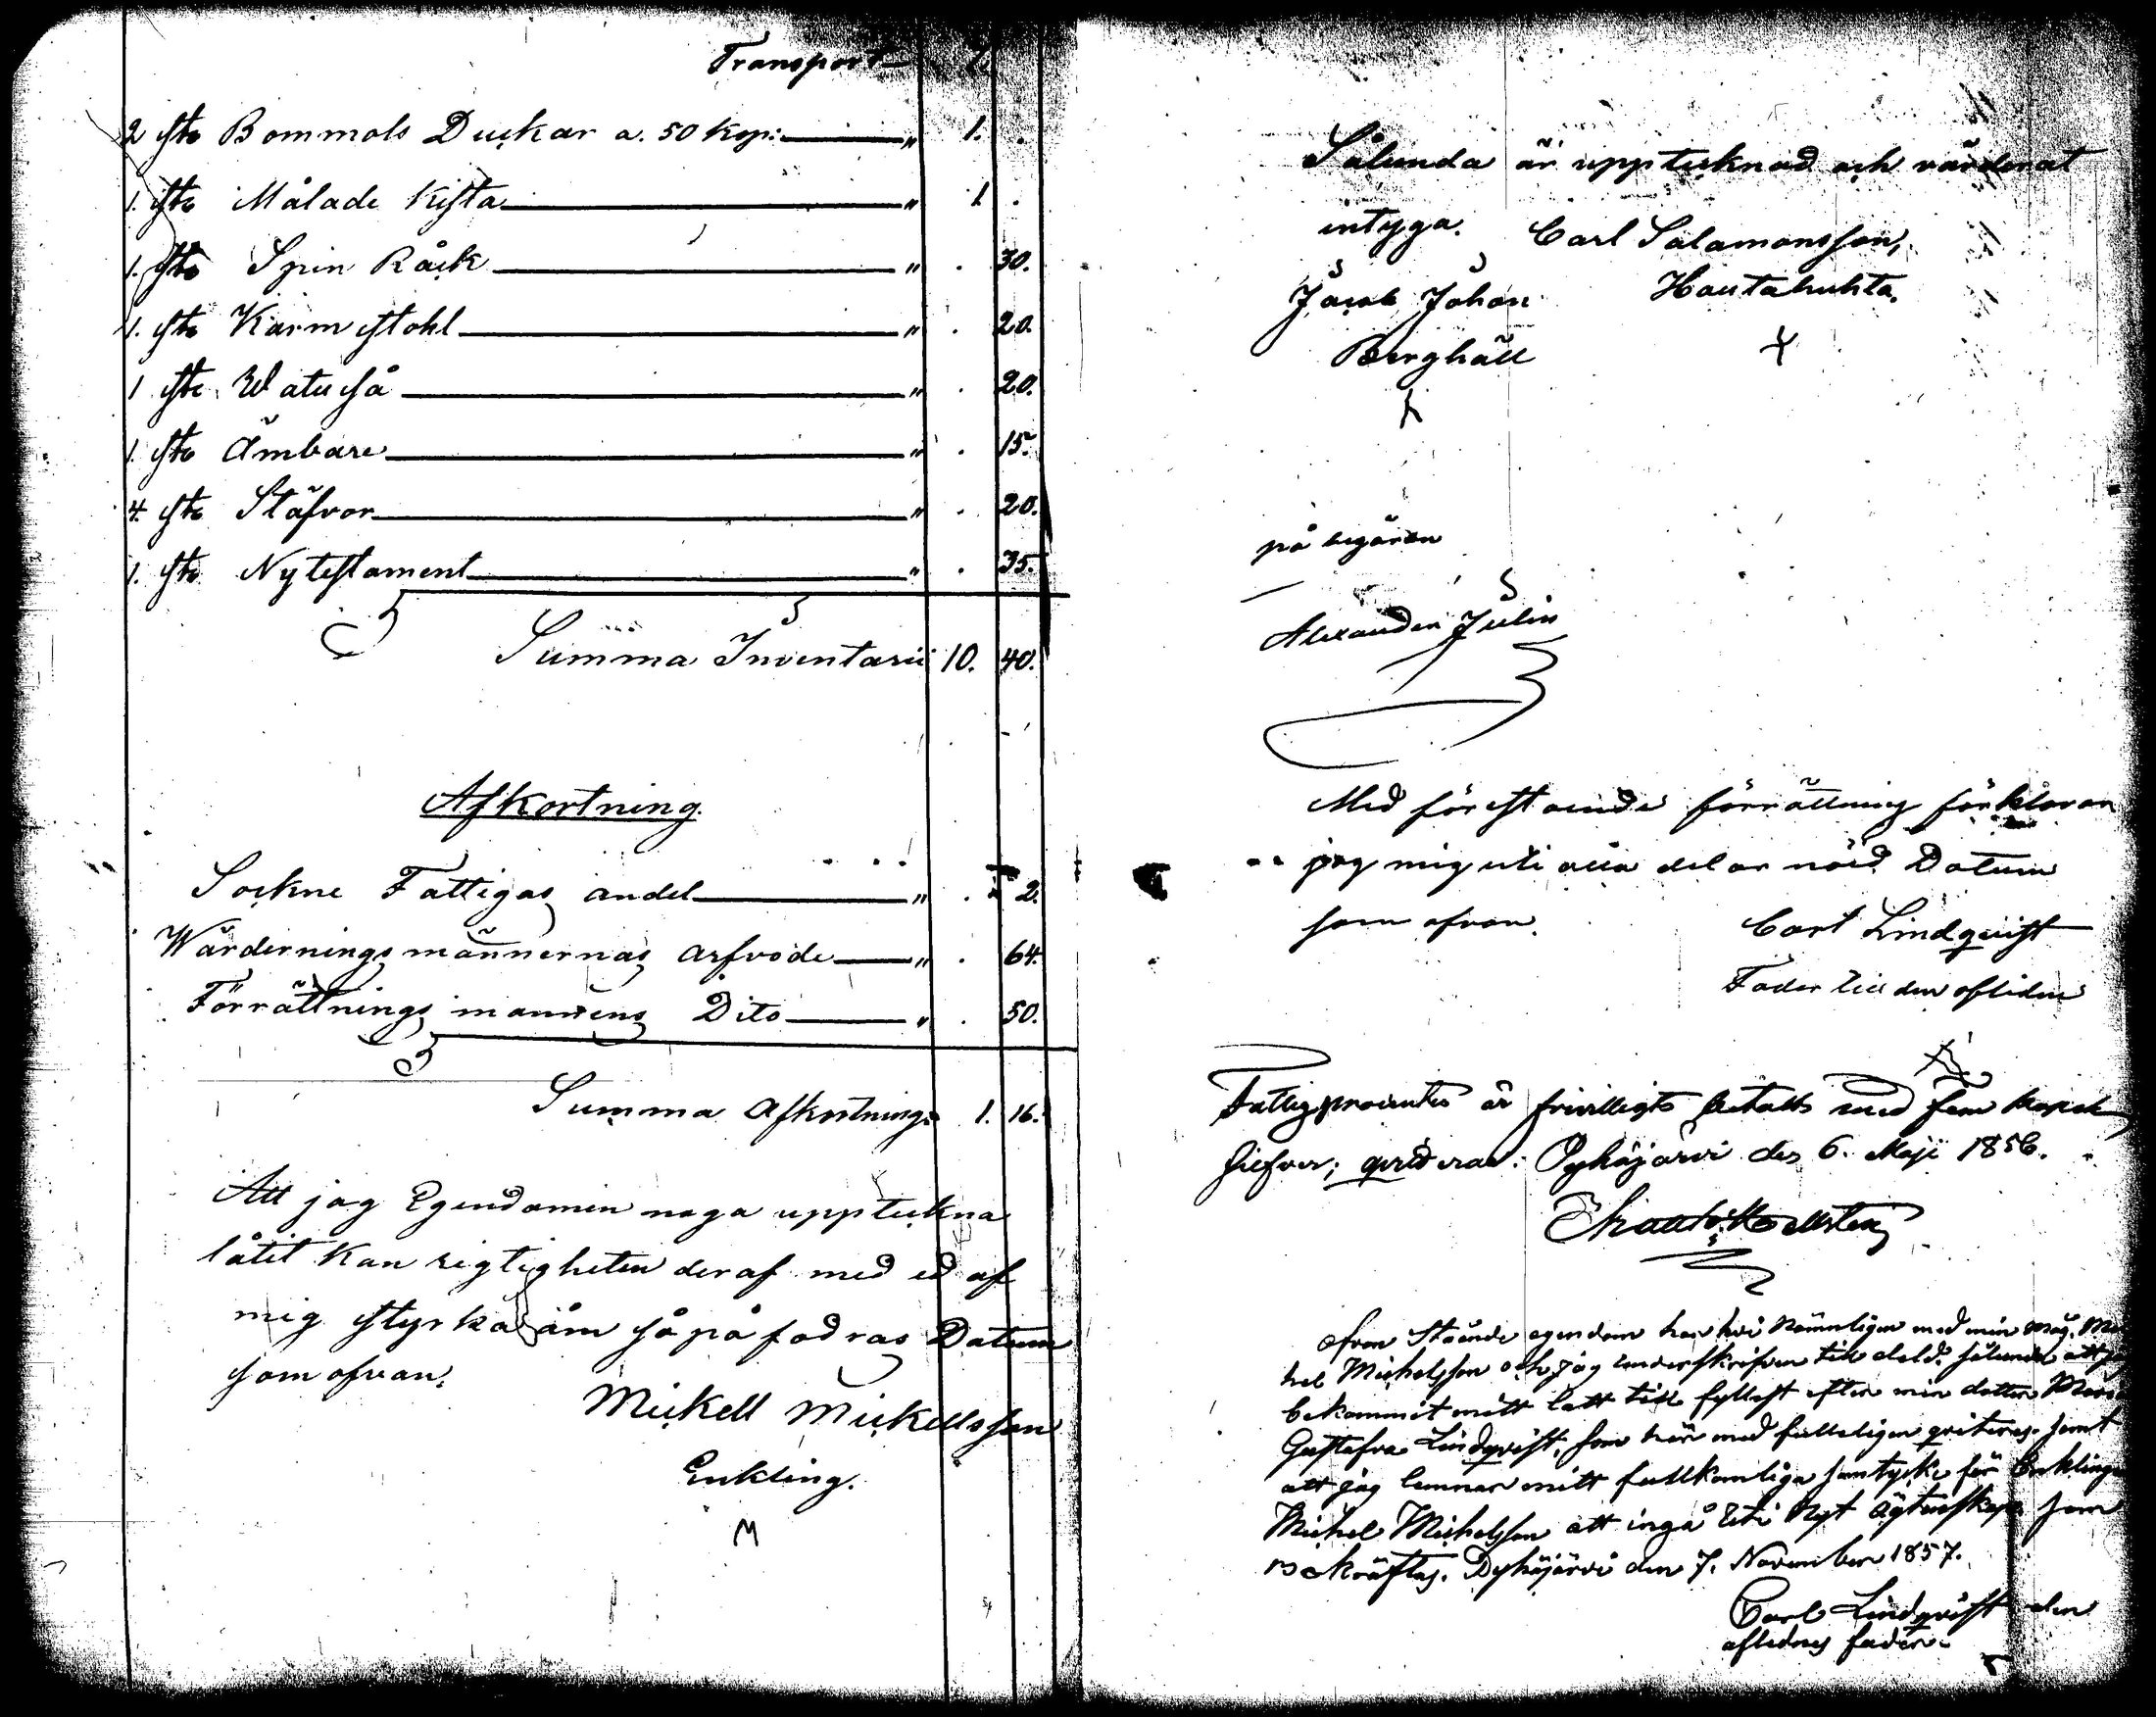 Transport 7.
2 st. Bommols Duckar a. 50 kop: " 1. .
1. st. Målade Kista " 1 .
1. st. Spin Råck " . 30.
1. st. Karm stohl " . 20.
1 st. Watuså " . 20.
1. st. Ämbare " . 15.
4. st. Stäfvor " . 20.
1. st. Nytestament " . 35.
Summa Inventarii 10. 40.
Afkortning.
Sockne Fattigas andel " . 2.
Wärderningsmännernas arfvode " . 64.
Förrättningsmannens Dito " . 50.
Summa Afkortning 1. 16.
Att jag Egendomen noga uppteckna
låtit Kan rigtigheten deraf med ed af
mig styrka åm så påfodras Datum
som ofvan.
Mickell Mickellsson
Enkling.
Sålunda är upptecknad och värderat
intyga. Carl Salamonsson,
Jacob Johan Hautahuhta.
Berghäll
på begäran
Alexander Julin
Med förestående förrättning förklarar
jag mig uti alla delar nöid Datum
som ofvan.
Carl Lindqvist
Fader till den aflidne
Fattigprocenten är frivilligt betalt med fem kopek
Silfver; qvitteras: Pyhäjärvi den 6. Maji 1856.
Ofvan Stående egendom har hvi Nämnligen med min måg, Mic
hel Michelsson och jag underskrifven till deld. sålunda att jag
bekommit mitt lått till fyllest efter min dotter Maria
Gustafva Lindqvist, som här med fulleligen qviteras. Samt
att jag lemnar mitt fullkomliga samtycke för Enklingen
Michel Michelsson att ingå Uti Nyt ägtenskap Som
Bekräftas. Pyhäjärvi den 7. November 1857.
Carl Lindqvist den
aflidnes fader.